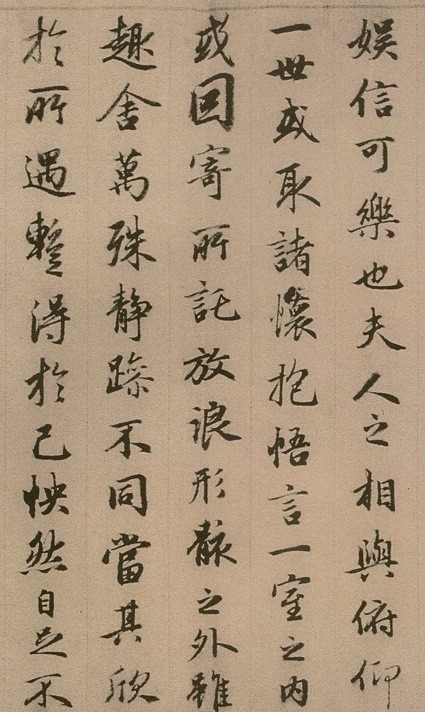 娛信可樂也夫人之相與俯仰
一世或取諸懷抱悟言一室之內
或因寄所託放浪形骸之外雖
趣舍萬殊静躁不同當其欣
於所遇蹔得於己怏然自足不